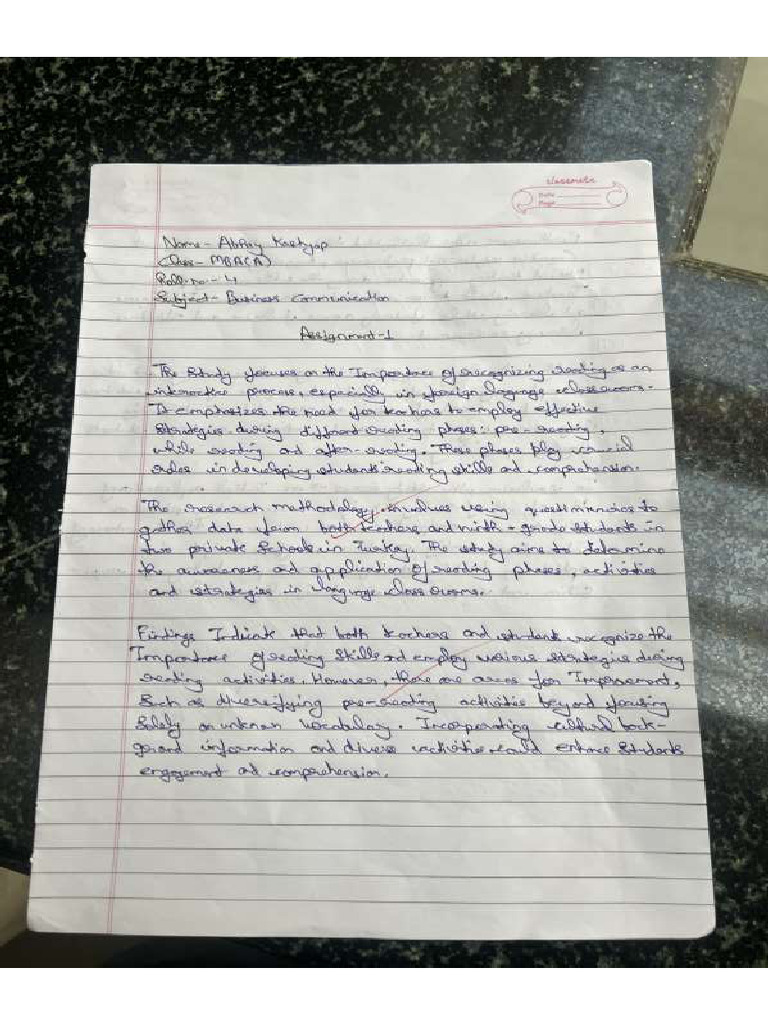 classmate
Date
Page
Name - Abhay Kashyap
Class - MBA(A)
Roll-no - 4
Subject - Business Communication
Assignment-1
The Study focuses on the Importance of recognizing reading as an
interactive process, especially in foreign language classrooms.
It emphasizes the need for teachers to employ effective
Strategies during different reading phases: pre-reading,
while reading and after-reading. These phases play crucial
roles in developing students' reading skills and comprehension.
The research methodology involves using questionnaires to
gather data from both teachers and ninth-grade students in
two private Schools in Turkey. The study aims to determine
the awareness and application of reading phases, activities
and strategies in language classrooms.
Findings Indicate that both teachers and students recognize the
Importance of reading skills and employ various strategies during
reading activities. However, there are areas for Improvement,
Such as diversifying pre-reading activities beyond focusing
Solely on unknown vocabulary. Incorporating cultural back-
ground information and diverse activities could enhance students
engagement and comprehension.